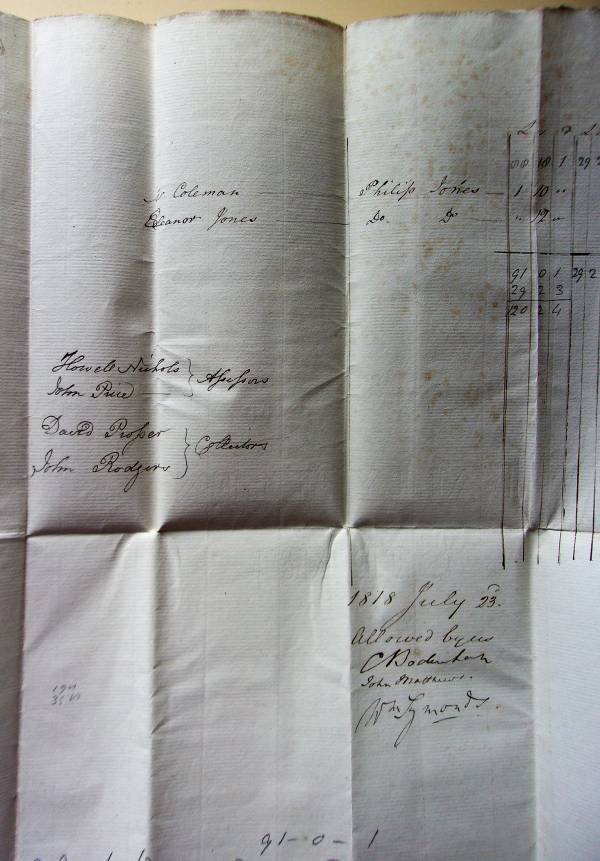 £ s d £
88 18 1 29 2
Coleman Philip Jones 1 10 "
Eleanor Jones Do. Do " 12 "
91 0 1 29 2
29 2 3
120 2 4
Howell Nichols
John Price
Assessors
David Prosser
John Rodgers
Collectors
1818 July 23.
Allowed by us
C Bodenham
John Matthews.
Wm Symonds
91-0-1